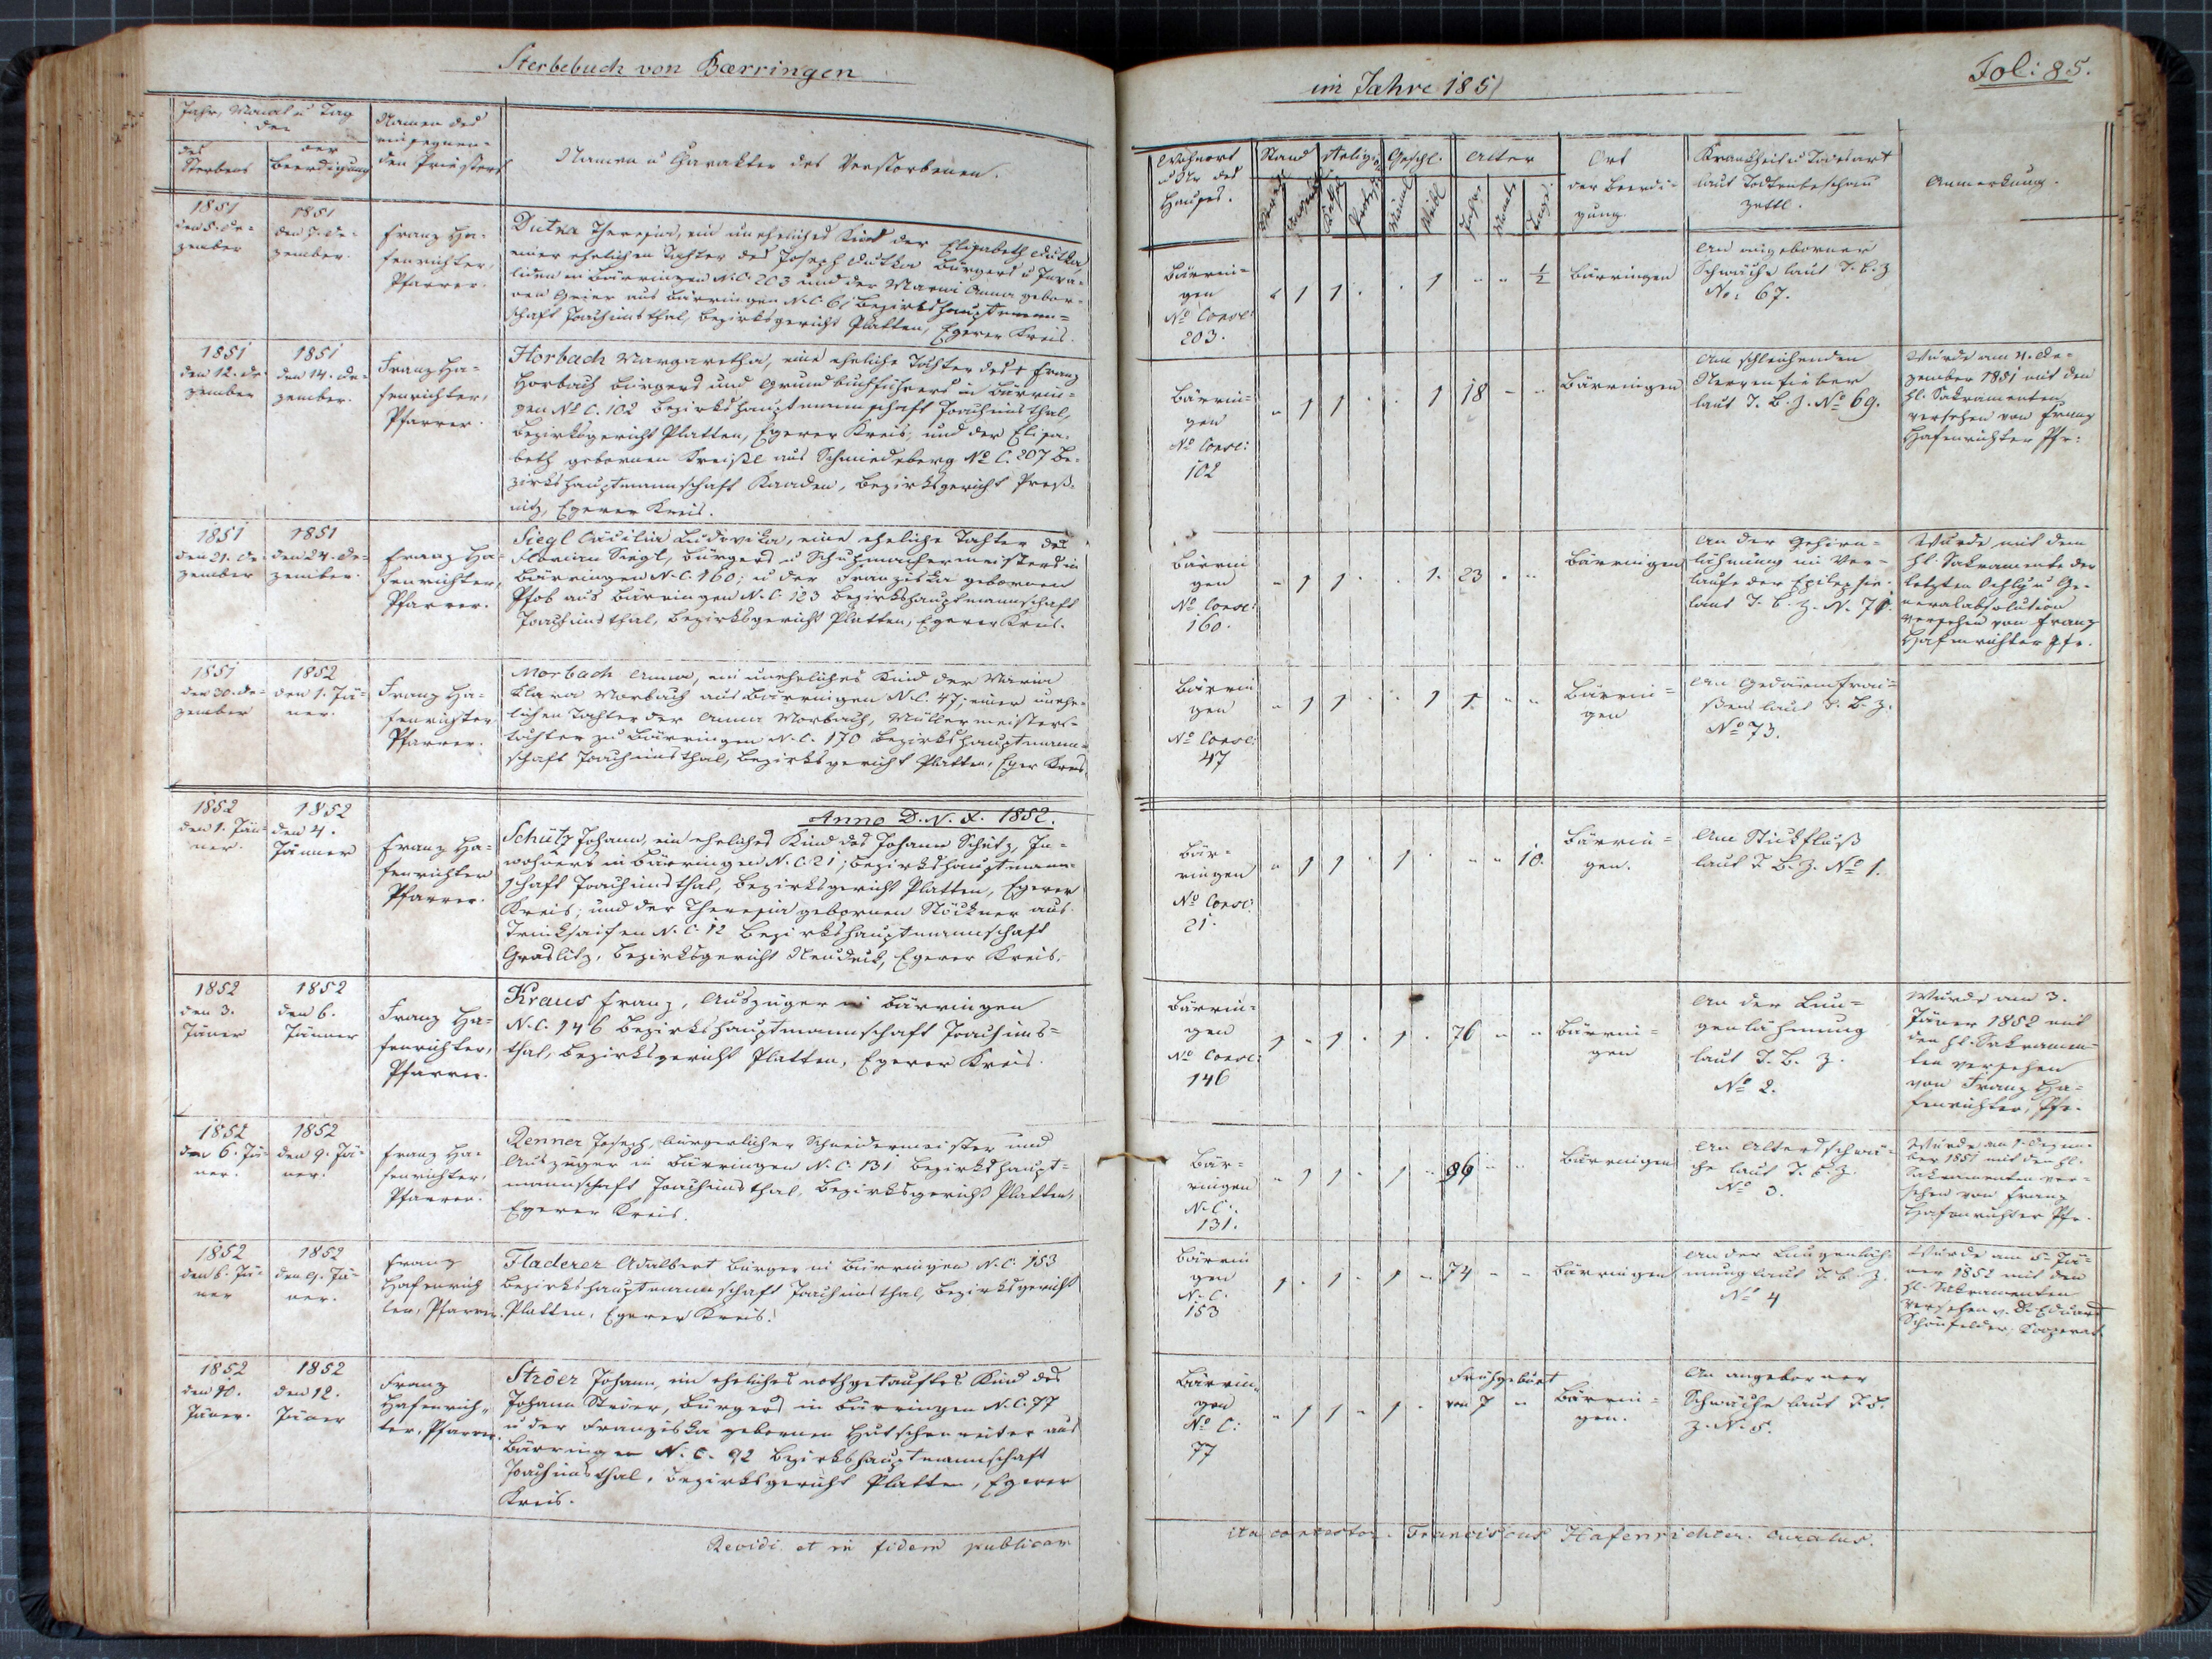 Sterbebuch von Bærringen
im Jahre 1851
Fol: 85.
Jahr, Monat u Tag
der
des
Sterbens
der
Beerdigung
Namen des
einsegnen-
den Priesters
Namen u Charakter des Verstorbenen.
Wohnort
u Nr des
Hauses.
Stand
Religion
Geschl.
Alter
Ort
der Beerdi-
gung
Krankheit u Todesart
laut Todtenbeschau
zettl.
Anmerkung.
1851
den 5. De-
zember
1851
den 7. De-
zember
Franz Ha-
fenrichter,
Pfarrer.
Dutka Theresia, ein uneheliches Kind der Elisabeth Dutka,
einer ehelichen Tochter des Joseph Dutka Bürgers u
in Bärringen N.C. 203 und der Maria Anna gebor-
nen Geier aus Bärringen N.C. 6, Bezirkshauptmann-
schaft Joachimsthal, Bezirksgericht Platten, Egerer Kreis.
Bärrin-
gen
No Consc:
203.
1 1 1 ½
Bärringen
An angeborner
Schwäche laut T. b. z.
No: 67.
1851
den 12. De-
zember
1851
den 14. De-
zember.
Franz Ha-
fenrichter,
Pfarrer.
Horbach Margaretha, eine eheliche Tochter des + Franz
Horbach Bürgers und Grundbuchführers in Bärrin-
gen No C. 102 Bezirkshauptmannschaft Joachimsthal,
Bezirksgericht Platten, Egerer Kreis, und der Elisa-
beth gebornen Kreißl aus Schmiedeberg No C. 207 Be-
zirkshauptmannschaft Kaaden, Bezirksgericht Preß-
nitz, Egerer Kreis.
Bärrin-
gen
No Consc:
102
1 1 1 18
Bärringen
Am schleichenden
Nervenfieber
laut T. B. Z. No 69.
Wurde am 4. De-
zember 1851 mit den
hl. Sakramenten
versehen von Franz
Hafenrichter Pfr:
1851
den 21. De-
zember
1851
den 24. De-
zember.
Franz Ha-
fenrichter,
Pfarrer.
Siegl Cäcilia Ludovika, eine eheliche Tochter des
Florian Siegl, Bürgers u Schuhmachermeisters in
Bärringen N.C. 160; u der Franziska gebornen
Pfob aus Bärringen N.C. 123 Bezirkshauptmannschaft
Joachimsthal, Bezirksgericht Platten, Egerer Kreis.
Bärrin
gen
No Consc:
160.
1 1 1. 23
Bärringen
An der Gehirn-
lähmung im Ver-
laufe der Epilepsie
laut T. b. z. N. 71.
Wurde mit dem
hl. Sakramente der
letzten Oehlg u Ge-
neralabsolution
versehen von Franz
Hafenrichter Pfr.
1851
den 30. De-
zember
1852
den 1. Jä-
ner.
Franz Ha-
fenrichter
Pfarrer.
Morbach Anna, ein uneheliches Kind der Maria
Klara Morbach aus Bärringen N.C. 47; einer unehe-
lichen Tochter der Anna Morbach, Müllermeisters-
tochter zu Bärringen N.C. 170 Bezirkshauptmann-
schaft Joachimsthal, Bezirksgericht Platten, Eger Kreis.
Bärrin
gen
No Consc:
47
1 1 1 1
Bärrin-
gen
An Gedärmfrai-
ßen laut T. b. z.
No 73.
Anno D. N. J. 1852.
1852
den 1. Jän-
ner.
1852
den 4.
Jänner
Franz Ha-
fenrichter
Pfarrer.
Schütz Johann, ein eheliches Kind des Johann Schütz In-
wohners in Bärringen N.C. 21; Bezirkshauptmann-
schaft Joachimsthal, Bezirksgericht Platten, Egerer
Kreis; und der Theresia gebornen Stöckner aus
Trinksaifen N.C. 12 Bezirkshauptmannschaft
Graslitz, Bezirksgericht Neudeck, Egerer Kreis.
Bär-
ringen
No Consc:
21.
1 1 1 10.
Bärrin-
gen.
Am Stickfluß
laut T. B. Z. No 1.
1852
den 3.
Jäner
1852
den 6.
Jänner
Franz Ha-
fenrichter,
Pfarrer.
Kraus Franz, Auszüger in Bärringen
N.C. 146 Bezirkshauptmannschaft Joachims-
thal, Bezirksgericht Platten, Egerer Kreis
Bärrin-
gen
No Consc:
146
1 1 1 76
Bärrin-
gen
An der Lun-
genlähmung
laut T. b. z.
No 2.
Wurde am 3.
Jäner 1852 mit
den hl. Sakramen-
ten versehen
von Franz Ha-
fenrichter, Pfr.
1852
den 6. Jä-
ner.
1852
den 9. Jä-
ner.
Franz Ha-
fenrichter,
Pfarrer.
Renner Joseph, bürgerlicher Schneidermeister und
Auszüger in Bärringen N.C. 131 Bezirkshaupt-
mannschaft Joachimsthal, Bezirksgericht Platten,
Egerer Kreis.
Bär-
ringen
N.C.
131.
1 1 1 86
Bärringen
An Altersschwä-
che laut T. b. z.
No 3.
Wurde am 1. Dezem-
ber 1851 mit den hl.
Sakramenten ver-
sehen von Franz
Hafenrichter Pfr.
1852
den 6. Jä-
ner
1852
den 9. Jä-
ner.
Franz
Hafenrich
ter, Pfarrer.
Fladerer Adalbert Bürger in Bärringen N.C. 153
Bezirkshauptmannschaft Joachimsthal, Bezirksgericht
Platten, Egerer Kreis.
Bärrin
gen
N.C.
153
1 1 1 74
Bärringen
An der Lungenläh-
mung laut T. b. z.
No 4
Wurde am 5. Jä-
ner 1852 mit den
hl. Sakramenten
versehen v. P. Eduard
Schönfelder, Kooperat
1852
den 10.
Jäner.
1852
den 12.
Jäner
Franz
Hafenrich-
ter, Pfarrer.
Ströer Johann, ein eheliches nothgetauftes Kind des
Johann Ströer, Bürgers in Bärringen N.C. 77
u der Franziska gebornen Hutschenreiter aus
Bärringen N.C. 92 Bezirkshauptmannschaft
Joachimsthal, Bezirksgericht Platten, Egerer
Kreis.
Bärrin-
gen
No C:
77
1 1 1
Frühgeburt
von 7
Bärrin-
gen.
An angeborner
Schwäche laut T. b.
z. N. 5.
Revidi et in fidem publicam
ita contestor. Franciscus Hafenrichter. Curatus.